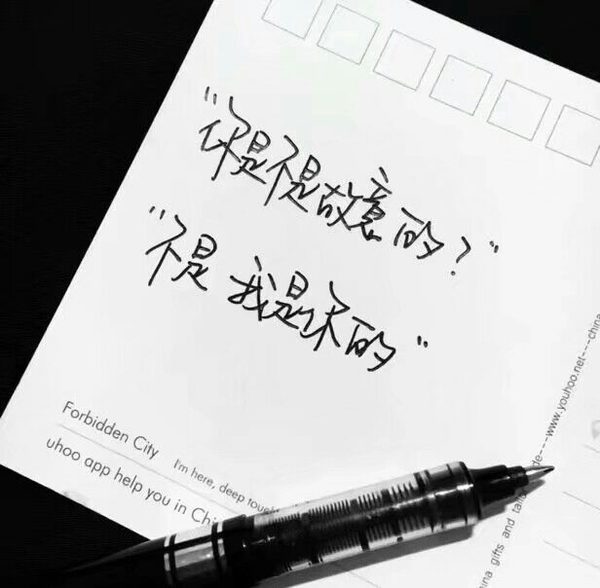 "你是不是故意的?"
"不是 我是你的"
Forbidden City I'm here, deep
uhoo app help you in Chi
na gifts and
de---www.youhoo.net---china